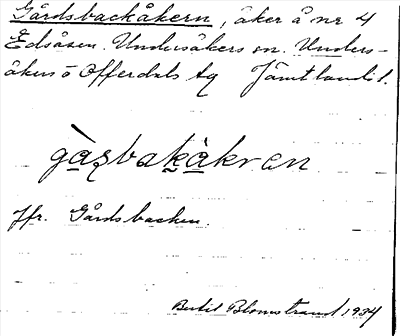 Gårdsbackåkern, åker å nr 4
Edsåsen. Undersåkers sn. Unders-
åkers o Offerdals tg Jämtlands l.
gàʂbak̬àkren
Jfr. Gårdsbacken.
Bertil Blomstrand 1934